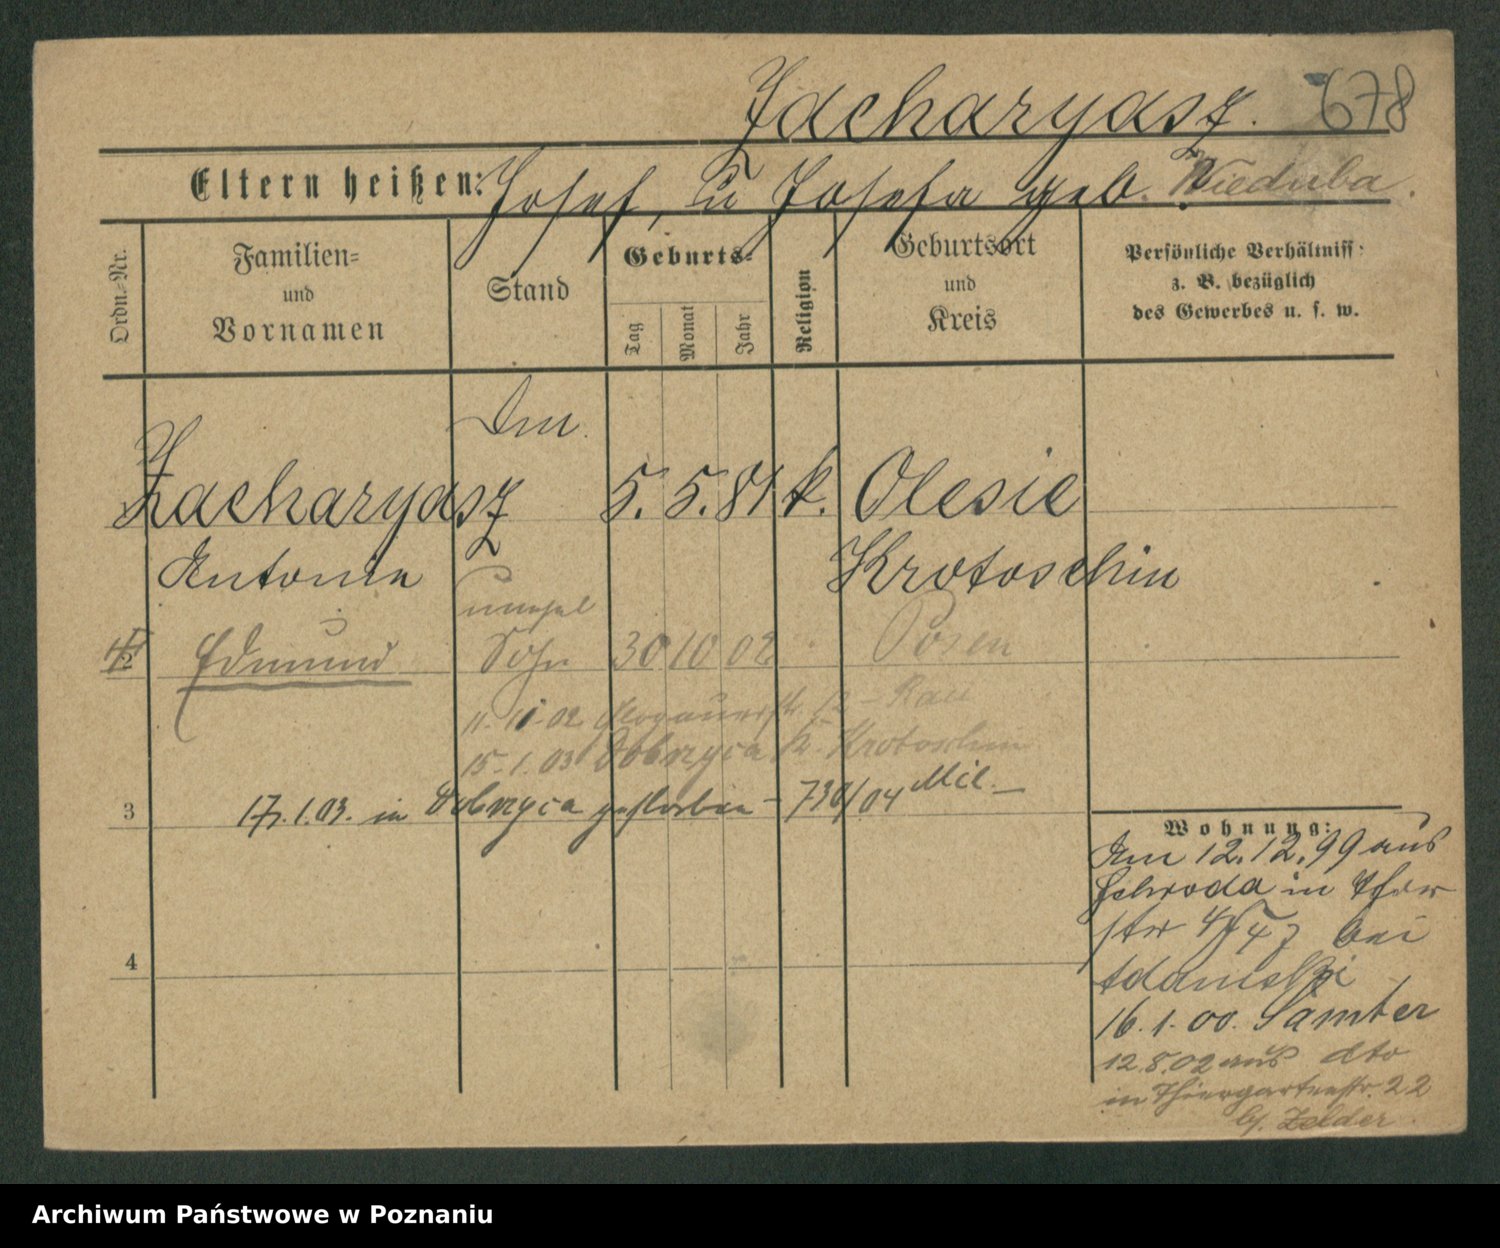 Zacharyasz. 678
Eltern heißen: Josef, u Josefa geb. Nieduba.
Ordn.-Nr.
Familien-
und
Vornamen
Stand
Geburts-
Tag
Monat
Jahr
Religion
Geburtsort
und
Kreis
Persönliche Verhältniss:
z. B. bezüglich
des Gewerbes u. s. w.
Zacharyasz 5. 5. 81 k. Olesie
Antonie Krotoschin
unehel
2 Edmund Sohn 30 10 02 Posen
11.11.02 Glogauerstr. 12 -
15.1.03 Dobrzyca K. Krotoschin
3 17.1.03. in Dobrzyca gestorben - 730/04 Mil. -
4
Wohnung:
Am 12.12.99 aus
Schroda in
bei
Adamski
16.1.00. Samter
12.8.02 aus dto
in Thiergartenstr. 22
b/. Zelder
Archiwum Państwowe w Poznaniu